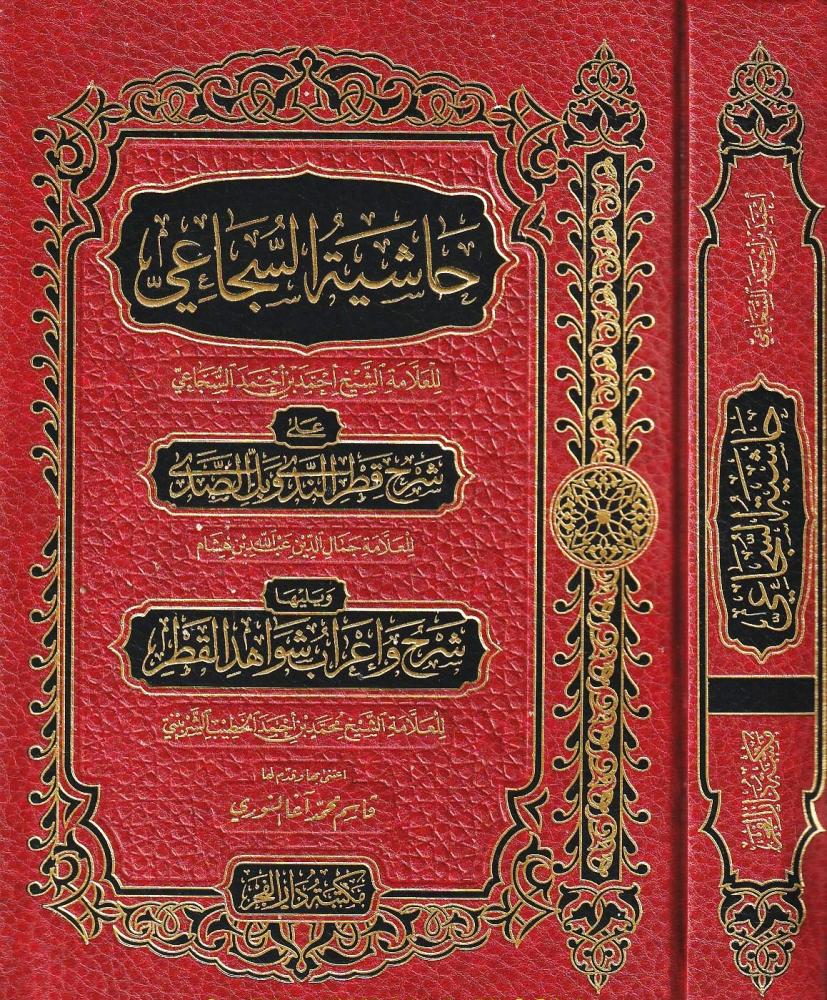 حَاشِيَةُ السُّجَاعِيّ
لِلعَلَّامَةِ الشَّيْخِ أَحْمَدَ بْنِ أَحْمَدَ السُّجَاعِيّ
عَلَى
شَرْحِ قَطْرِ النَّدَى وَبَلِّ الصَّدَى
لِلعَلَّامَةِ جَمَالِ الدِّيْنِ عَبْدِ اللَّهِ بْنِ هِشَام
وَيَلِيْهَا
شَرْحُ وَإِعْرَابُ شَوَاهِدِ القَطْرِ
لِلعَلَّامَةِ الشَّيْخِ مُحَمَّدِ بْنِ أَحْمَدَ الخَطِيْبِ الشِّرْبِيْنِيّ
اعتنى بها وقدم لها
قاسم محمد آغا النوري
مَكْتَبَةُ دَارِ الفَجْرِ
أَحْمَدَ بْنِ أَحْمَدَ السُّجَاعِيّ
حَاشِيَةُ السُّجَاعِيّ
مَكْتَبَةُ دَارِ الفَجْرِ